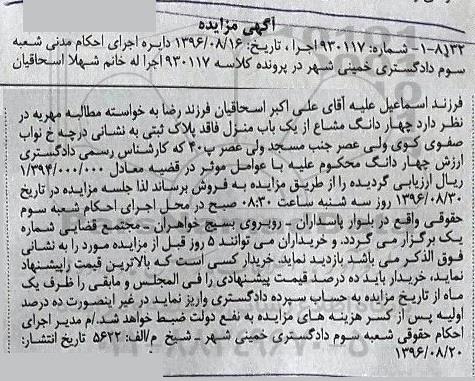 آگهی مزایده
۱-۸J۳۲- شماره: ۹۳۰۱۱۷ اجرا، تاریخ: ۱۳۹۶/۰۸/۱۶ دایره اجرای احکام مدنی شعبه
سوم دادگستری خمینی شهر در پرونده کلاسه ۹۳۰۱۱۷ اجرا له خانم شهلا اسحاقیان
فرزند اسماعیل علیه آقای علی اکبر اسحاقیان فرزند رضا به خواسته مطالبه مهریه در
نظر دارد چهار دانگ مشاع از یک باب منزل فاقد پلاک ثبتی به نشانی درچه خ نواب
صفوی کوی ولی عصر جنب مسجد ولی عصر پ۴۰ که کارشناس رسمی دادگستری
ارزش چهار دانگ محکوم علیه با عوامل موثر در قضیه معادل ۱/۳۹۴/۰۰۰/۰۰۰
ریال ارزیابی گردیده را از طریق مزایده به فروش برساند لذا جلسه مزایده در تاریخ
۱۳۹۶/۰۸/۳۰ روز سه شنبه ساعت ۰۸:۳۰ صبح در محل اجرای احکام شعبه سوم
حقوقی واقع در بلوار پاسداران ـ روبروی بسیج خواهران ـ مجتمع قضایی شماره
یک برگزار می گردد. و خریداران می توانند ۵ روز قبل از مزایده مورد را به نشانی
فوق الذکر می باشد بازدید نماید. خریدار کسی است که بالاترین قیمت راپیشنهاد
نماید، خریدار باید ده درصد قیمت پیشنهادی را فی المجلس و مابقی را ظرف یک
ماه از تاریخ مزایده به حساب سپرده دادگستری واریز نماید در غیر اینصورت ده درصد
اولیه پس از کسر هزینه های مزایده به نفع دولت ضبط خواهد شد./م مدیر اجرای
احکام حقوقی شعبه سوم دادگستری خمینی شهر ـ شیخ م/الف: ۵۶۲۲ تاریخ انتشار:
۱۳۹۶/۰۸/۲۰